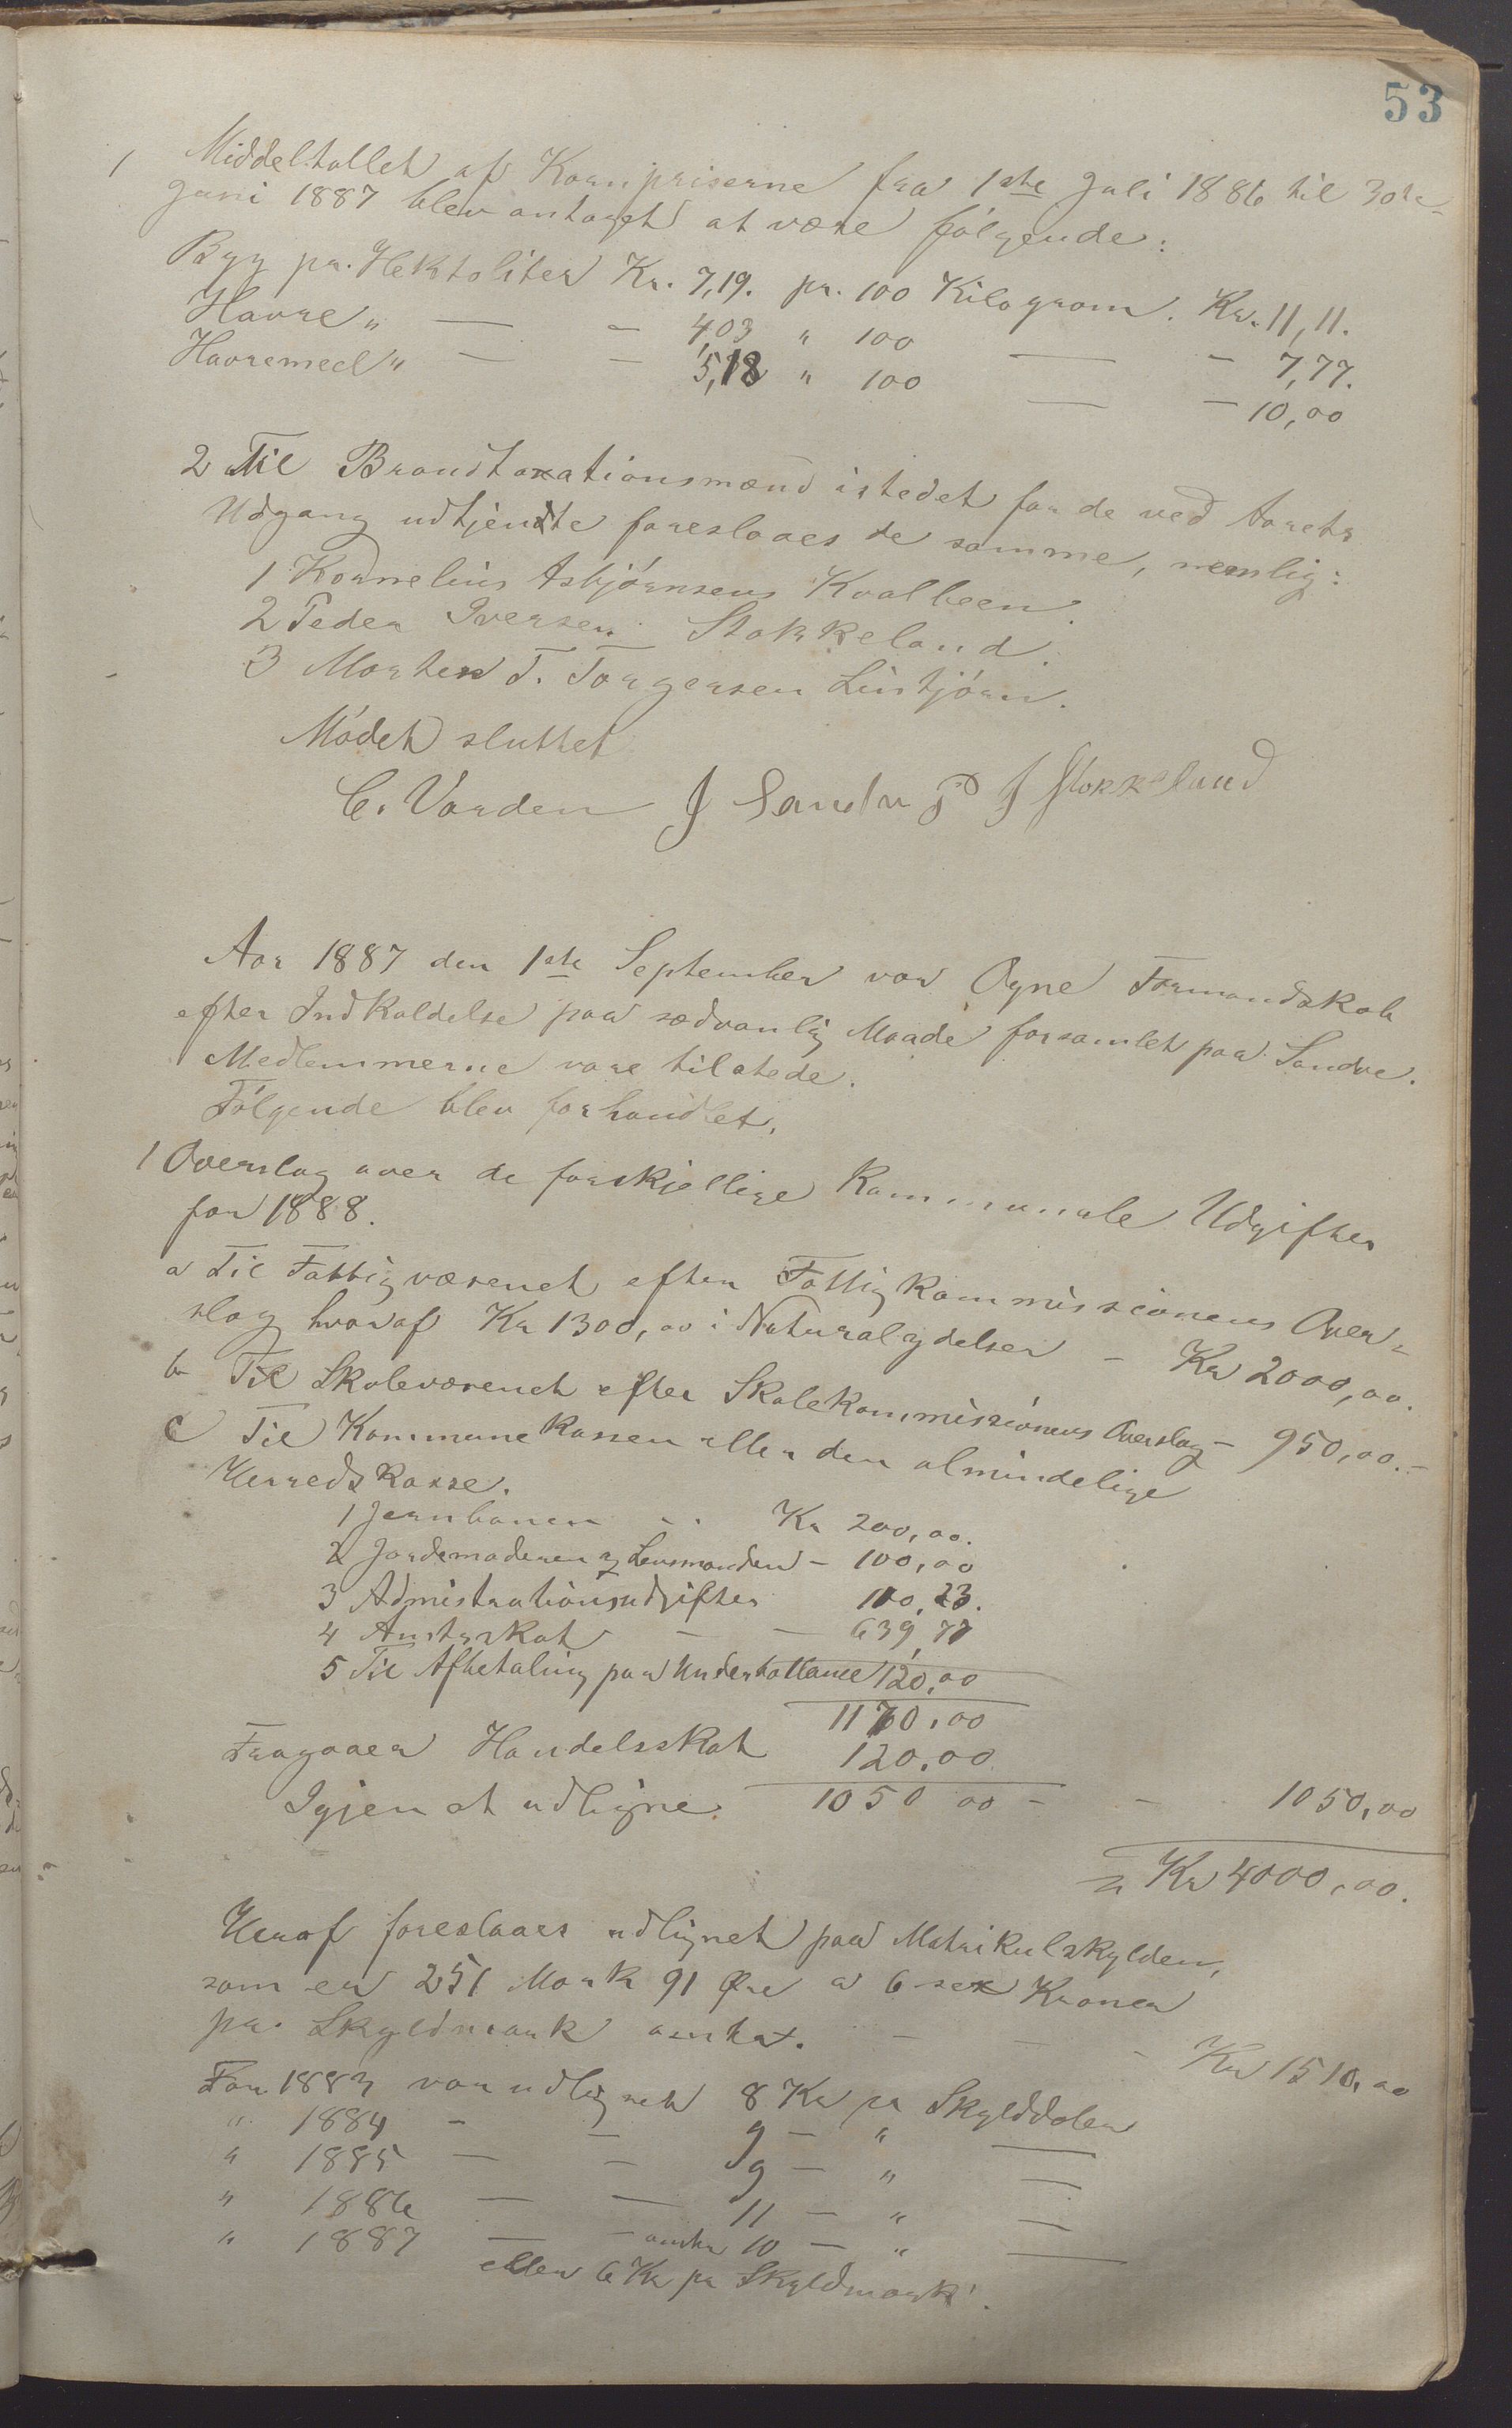 53
1 Middeltallet af Kornpriserne fra 1ste Juli 1886 til 30te
Juni 1887 blev antaget at være følgende:
Byg pr. Hektoliter Kr. 7,19. pr. 100 Kilogram. Kr. 11,11.
Havre " — - 4,03 " 100 — - 7,77.
Havremeel " — - 5,18 " 100 — - 10,00
2 Til Brandtaxationsmænd istedet for de ved Aarets
Udgang udtjente foreslaaes de samme, nemlig:
1 Kornelius Asbjørnsens Kvalbeen.
2 Peder Iversen Stokkeland.
3 Morten T. Torgersen Lintjørn.
Mødet sluttet
C. Varden J Sandve P J Stokkeland
Aar 1887 den 1ste September var Ogne Formandskab
efter Indkaldelse paa sædvanlig Maade forsamlet paa Sandve.
Medlemmerne vare tilstede.
Følgende blev forhandlet.
1 Overslag over de forskjellige Kommunale Udgifter
for 1888.
a Til Fattigvæsenet efter Fattigkommissionens Over-
slag hvoraf Kr 1300,00 i Naturalydelser - Kr 2000,00.
b Til Skolevæsenet efter Skolekommissionens Overslag - 950,00.-
c Til Kommunekassen eller den almindelige
Herredskasse.
1 Jernbanen " " Kr 200,00.
2 Jordemoderen og Lensmanden - 100,00
3 Admistrationsudgifter 110,23.
4 Amtsskat - - 639,77
5 Til Afbetaling paa Underballance 120,00
1170,00
Fragaaer Handelsskat 120,00
Igjen at udligne. 1050 00 - - 1050,00
= Kr 4000,00.
Heraf foreslaaes udlignet paa Matrikulskylden,
som er 251 Mark 91 Øre a 6 sex Kroner
pr. Skyldmark omtr. - - - Kr 1510,00
For 1883 var udlignet 8 Kr pr Skylddaler
" 1884 - - 9 - " —
" 1885 — - 9 - " —
" 1886 — — 11 - " —
" 1887 — - omtr 10 - " —
eller 6 Kr pr Skyldmark.